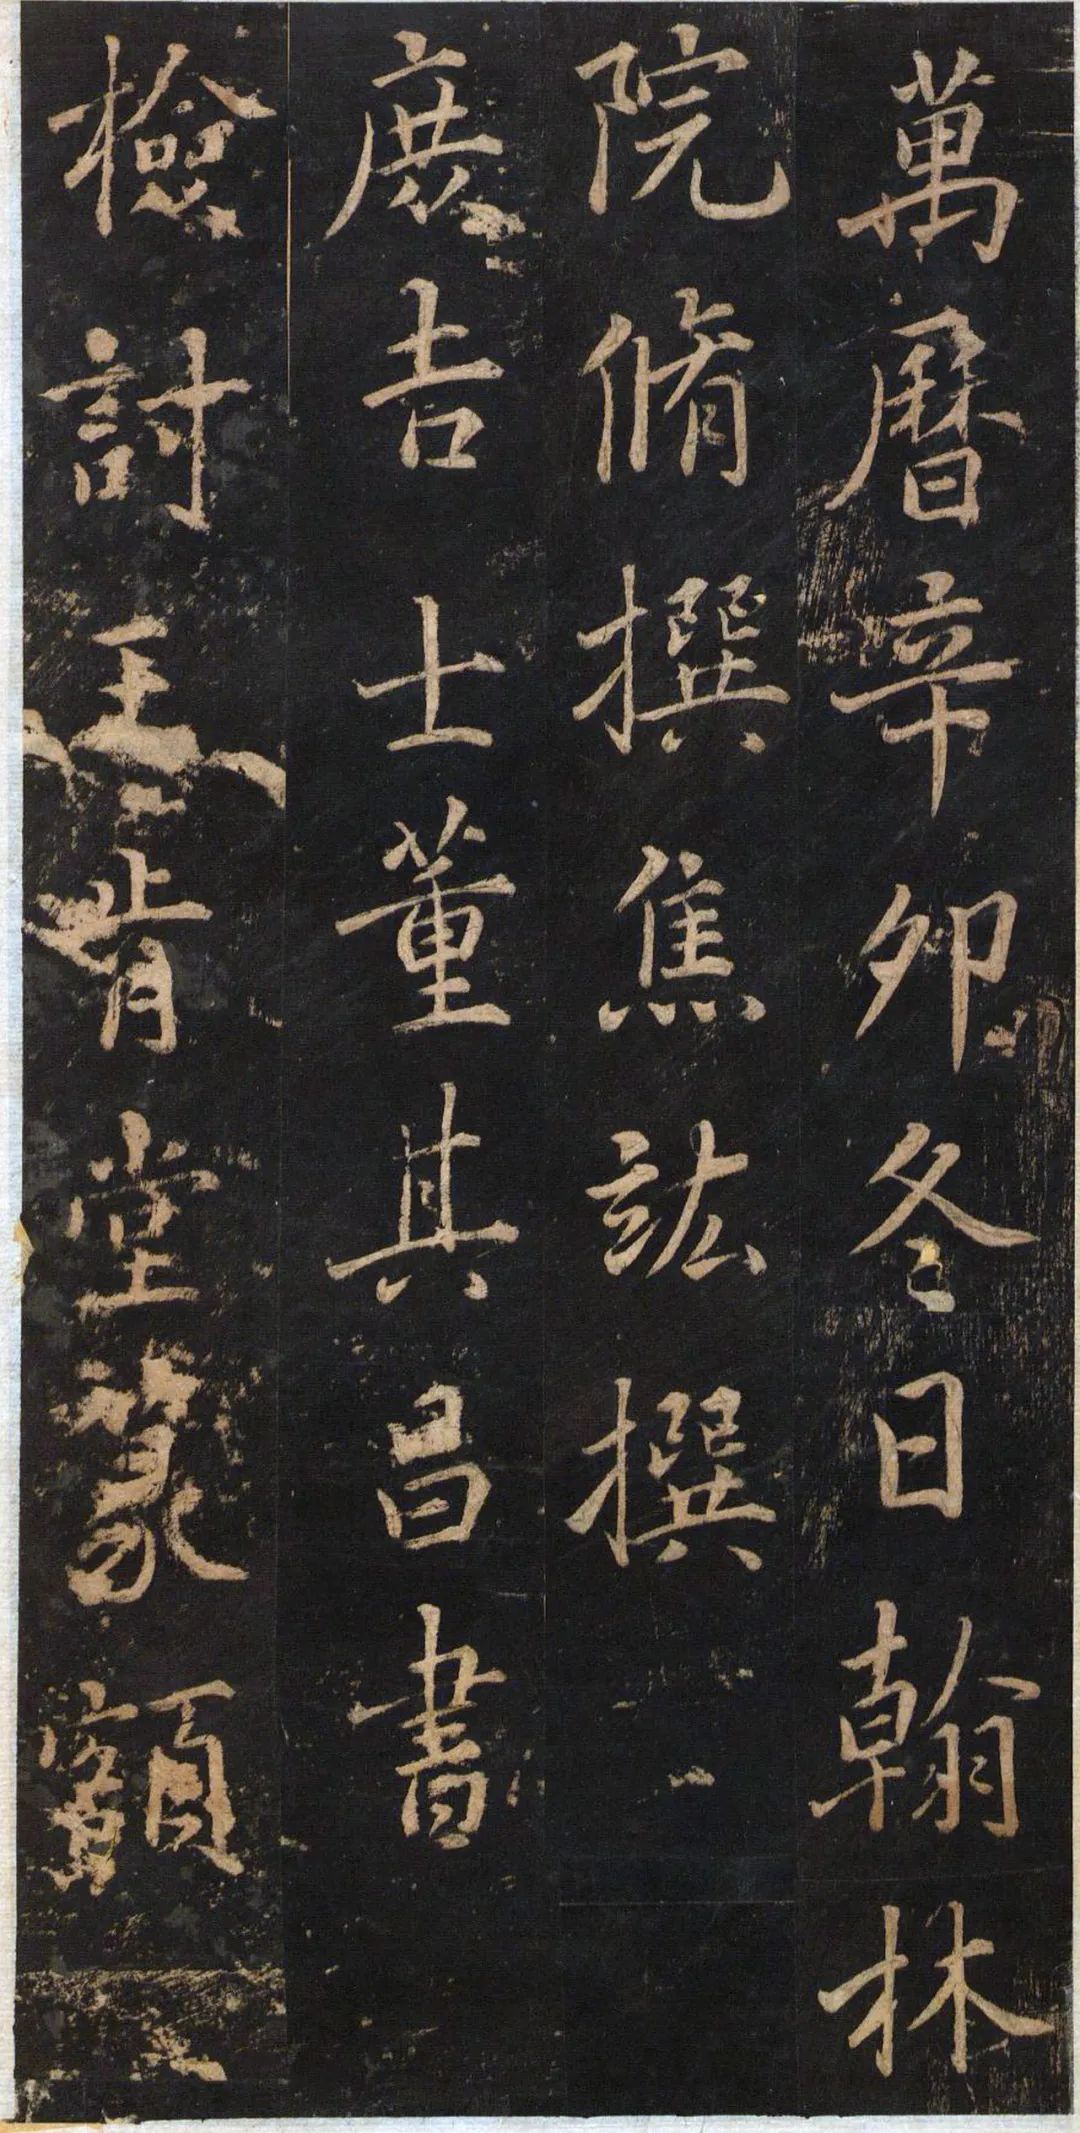 萬曆辛卯冬日翰林
院脩撰焦竑撰
庶吉士董其昌書
檢討王肯堂篆額